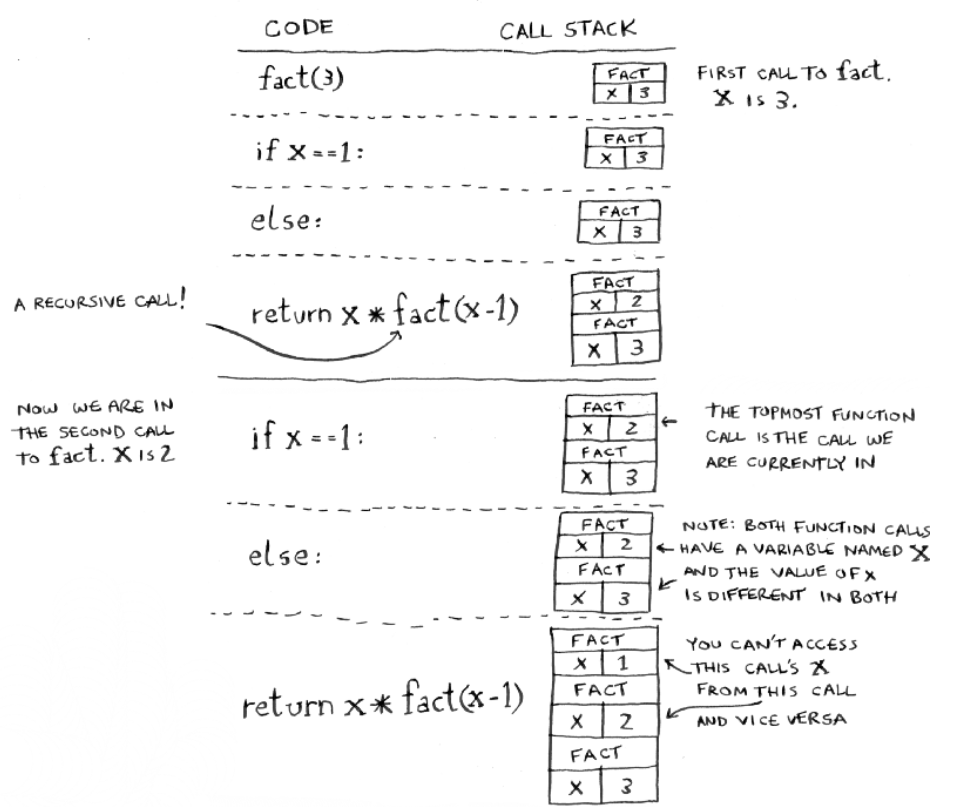 CODE CALL STACK
fact(3)
FACT
X 3
FIRST CALL TO fact.
X IS 3.
if x==1:
FACT
X 3
else:
FACT
X 3
A RECURSIVE CALL!
return x * fact(x-1)
FACT
X 2
FACT
X 3
NOW WE ARE IN
THE SECOND CALL
TO fact. X IS 2
if x==1:
FACT
X 2
FACT
X 3
THE TOPMOST FUNCTION
CALL IS THE CALL WE
ARE CURRENTLY IN
else:
FACT
X 2
FACT
X 3
NOTE: BOTH FUNCTION CALLS
HAVE A VARIABLE NAMED X
AND THE VALUE OF X
IS DIFFERENT IN BOTH
return x * fact(x-1)
FACT
X 1
FACT
X 2
FACT
X 3
YOU CAN'T ACCESS
THIS CALL'S X
FROM THIS CALL
AND VICE VERSA